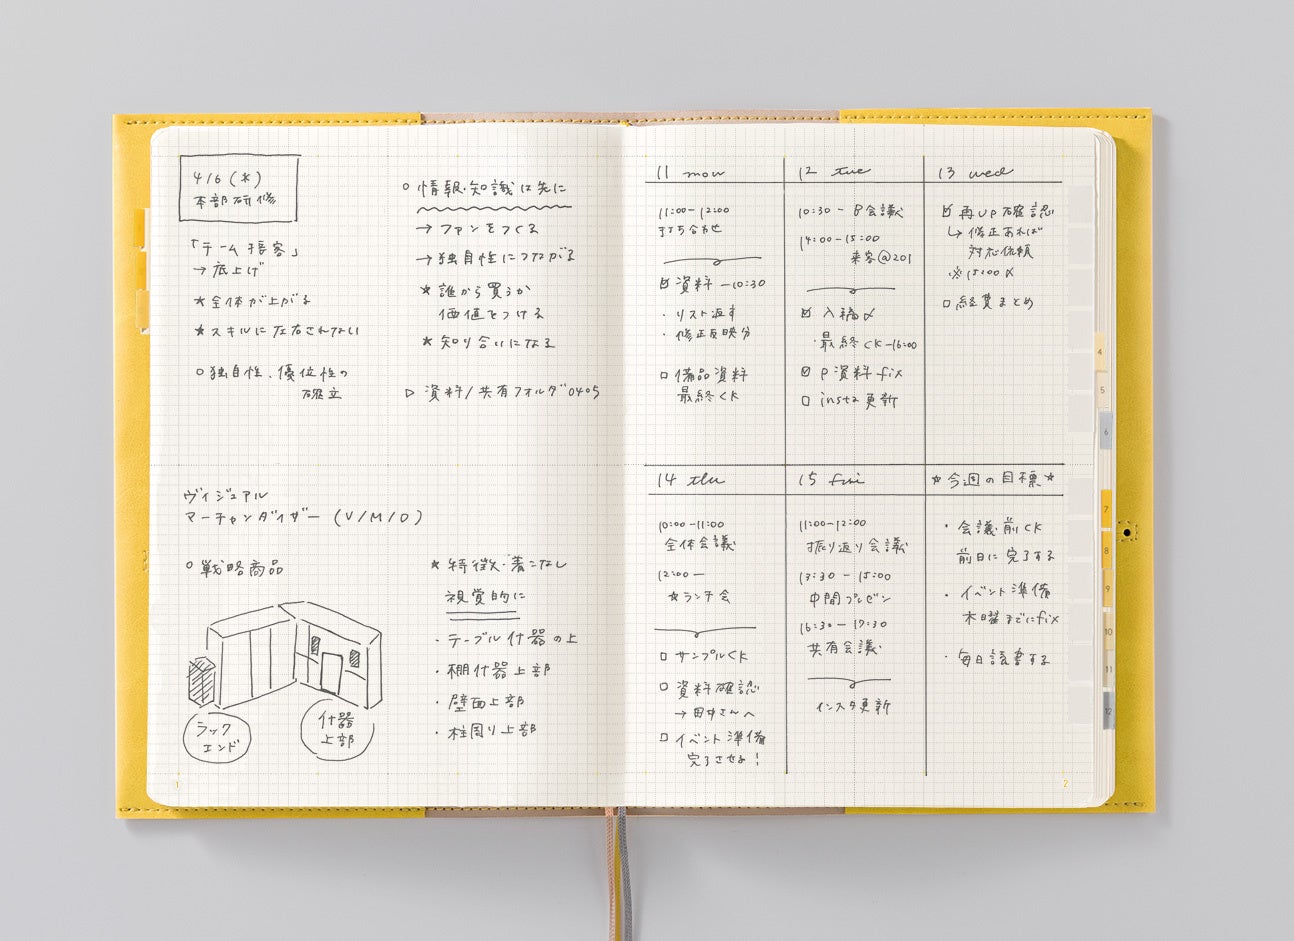 4/6(水)
本部研修
「チーム接客」
→底上げ
★全体が上がる
★スキルに左右されない
○独自性、優位性の
確立
○情報・知識は先に
→ファンをつくる
→独自性につながる
★誰から買うか
価値をつける
★知り合いになる
▷資料/共有フォルダ0405
ヴィジュアル
マーチャンダイザー(V/M/D)
○戦略商品
ラック
エンド
什器
上部
★特徴・着こなし
視覚的に
・テーブル什器の上
・棚什器上部
・壁面上部
・柱周り上部
1
11 mon
11:00-12:00
打ち合わせ
☑資料-10:30
・リスト返す
・修正反映分
□備品資料
最終CK
12 tue
10:30-8会議
14:00-15:00
来客@201
☑入稿〆
・最終CK-16:00
☑P資料fix
□insta更新
13 wed
☑再UP確認
↳修正あれば
対応依頼
※15:00〆
□経費まとめ
14 thu
10:00-11:00
全体会議
12:00-
☆ランチ会
□サンプルCK
□資料確認
→田中さんへ
□イベント準備
完了させる!
15 fri
11:00-12:00
振り返り会議
13:30-15:00
中間プレゼン
16:30-17:30
共有会議
インスタ更新
★今週の目標★
・会議前CK
前日に完了する
・イベント準備
木曜までにfix
・毎日読書する
2
4
5
6
7
8
9
10
11
12